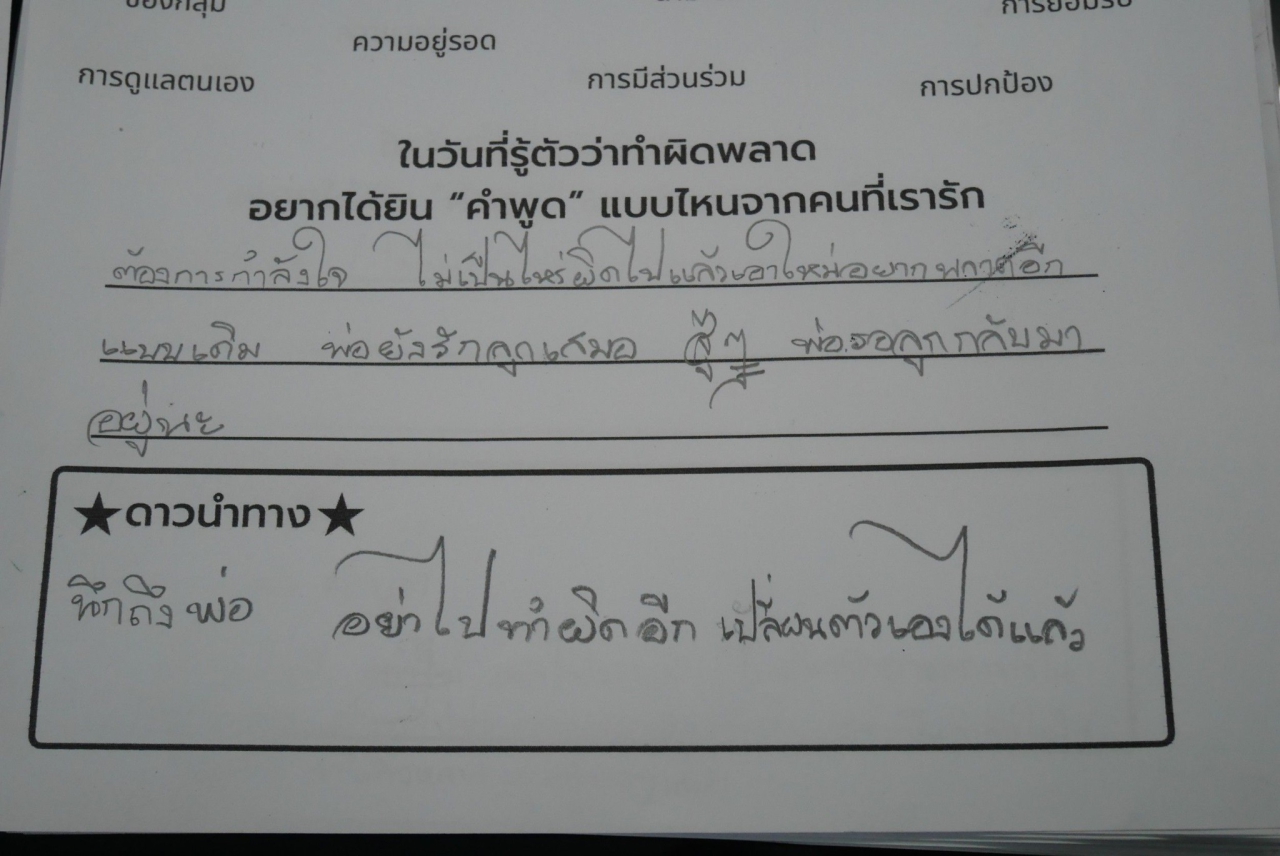 ของกลุ่ม การยอมรับ
ความอยู่รอด
การดูแลตนเอง การมีส่วนร่วม การปกป้อง
ในวันที่รู้ตัวว่าทำผิดพลาด
อยากได้ยิน “คำพูด” แบบไหนจากคนที่เรารัก
ต้องการกำลังใจ ไม่เป็นไหร่ผิดไปแล้วเอาใหม่อยากพลาดอีก
แบบเดิม พ่อยังรักลูกเสมอ สู้ๆ พ่อรอลูกกลับมา
อยู่นะ
★ดาวนำทาง★
นึกถึงพ่อ อย่าไปทำผิดอีก เปลี่ยนตัวเองได้แล้ว